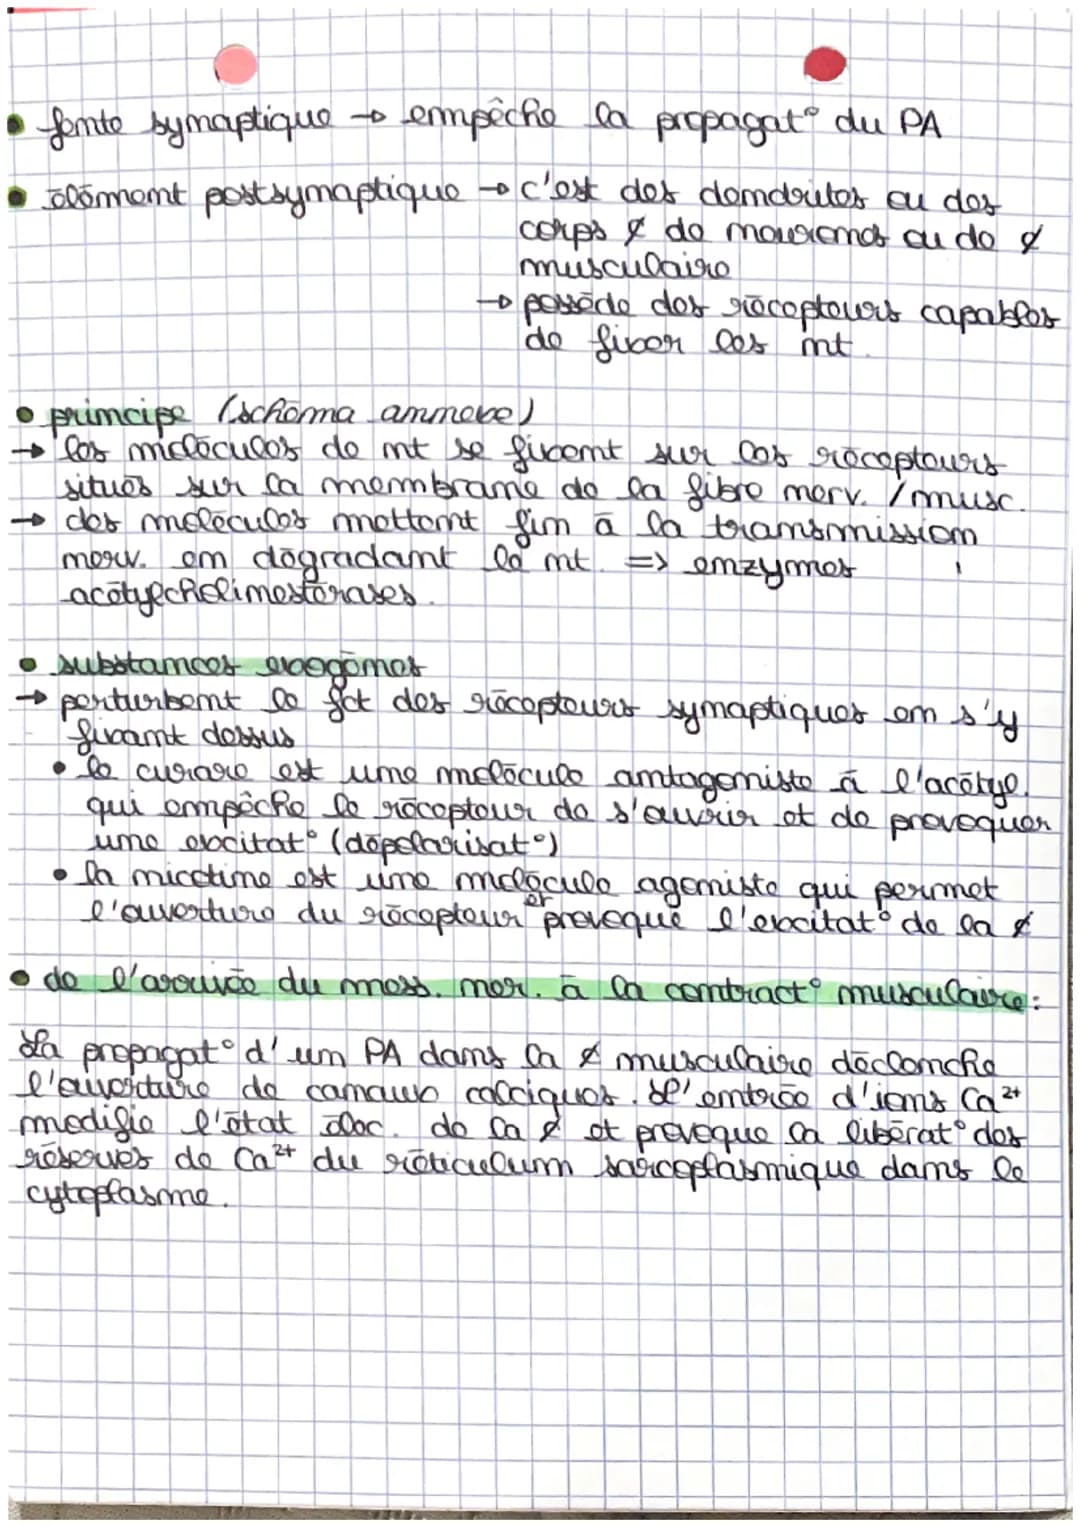 • fente synaptique → empêche la propagat° du PA
• élément postsynaptique → c'est des dendrites ou des
corps ¢ de neurones ou de ¢
musculaire
→ possède des récepteurs capables
de fixer les mt.
• principe (schéma annexe)
→ les molécules de mt se fixent sur les récepteurs
situés sur la membrane de la fibre nerv. / musc.
→ des molécules mettent fin à la transmission
nerv. en dégradant le mt. => enzymes
acétylcholinestérases.
• substances exogènes
→ perturbent le fct des récepteurs synaptiques en s'y
fixant dessus
• le curare est une molécule antagoniste à l'acétyl.
qui empêche le récepteur de s'ouvrir et de provoquer
une excitat° (dépolarisat°)
• la nicotine est une molécule agoniste qui permet
l'ouverture du récepteur et provoque l'excitat° de la ¢
• de l'arrivée du mess. ner. à la contract° musculaire :
La propagat° d'un PA dans la ¢ musculaire déclenche
l'ouverture de canaux calciques. L'entrée d'ions Ca²⁺
modifie l'état élec. de la ¢ et provoque la libérat° des
réserves de Ca²⁺ du réticulum sarcoplasmique dans le
cytoplasme.